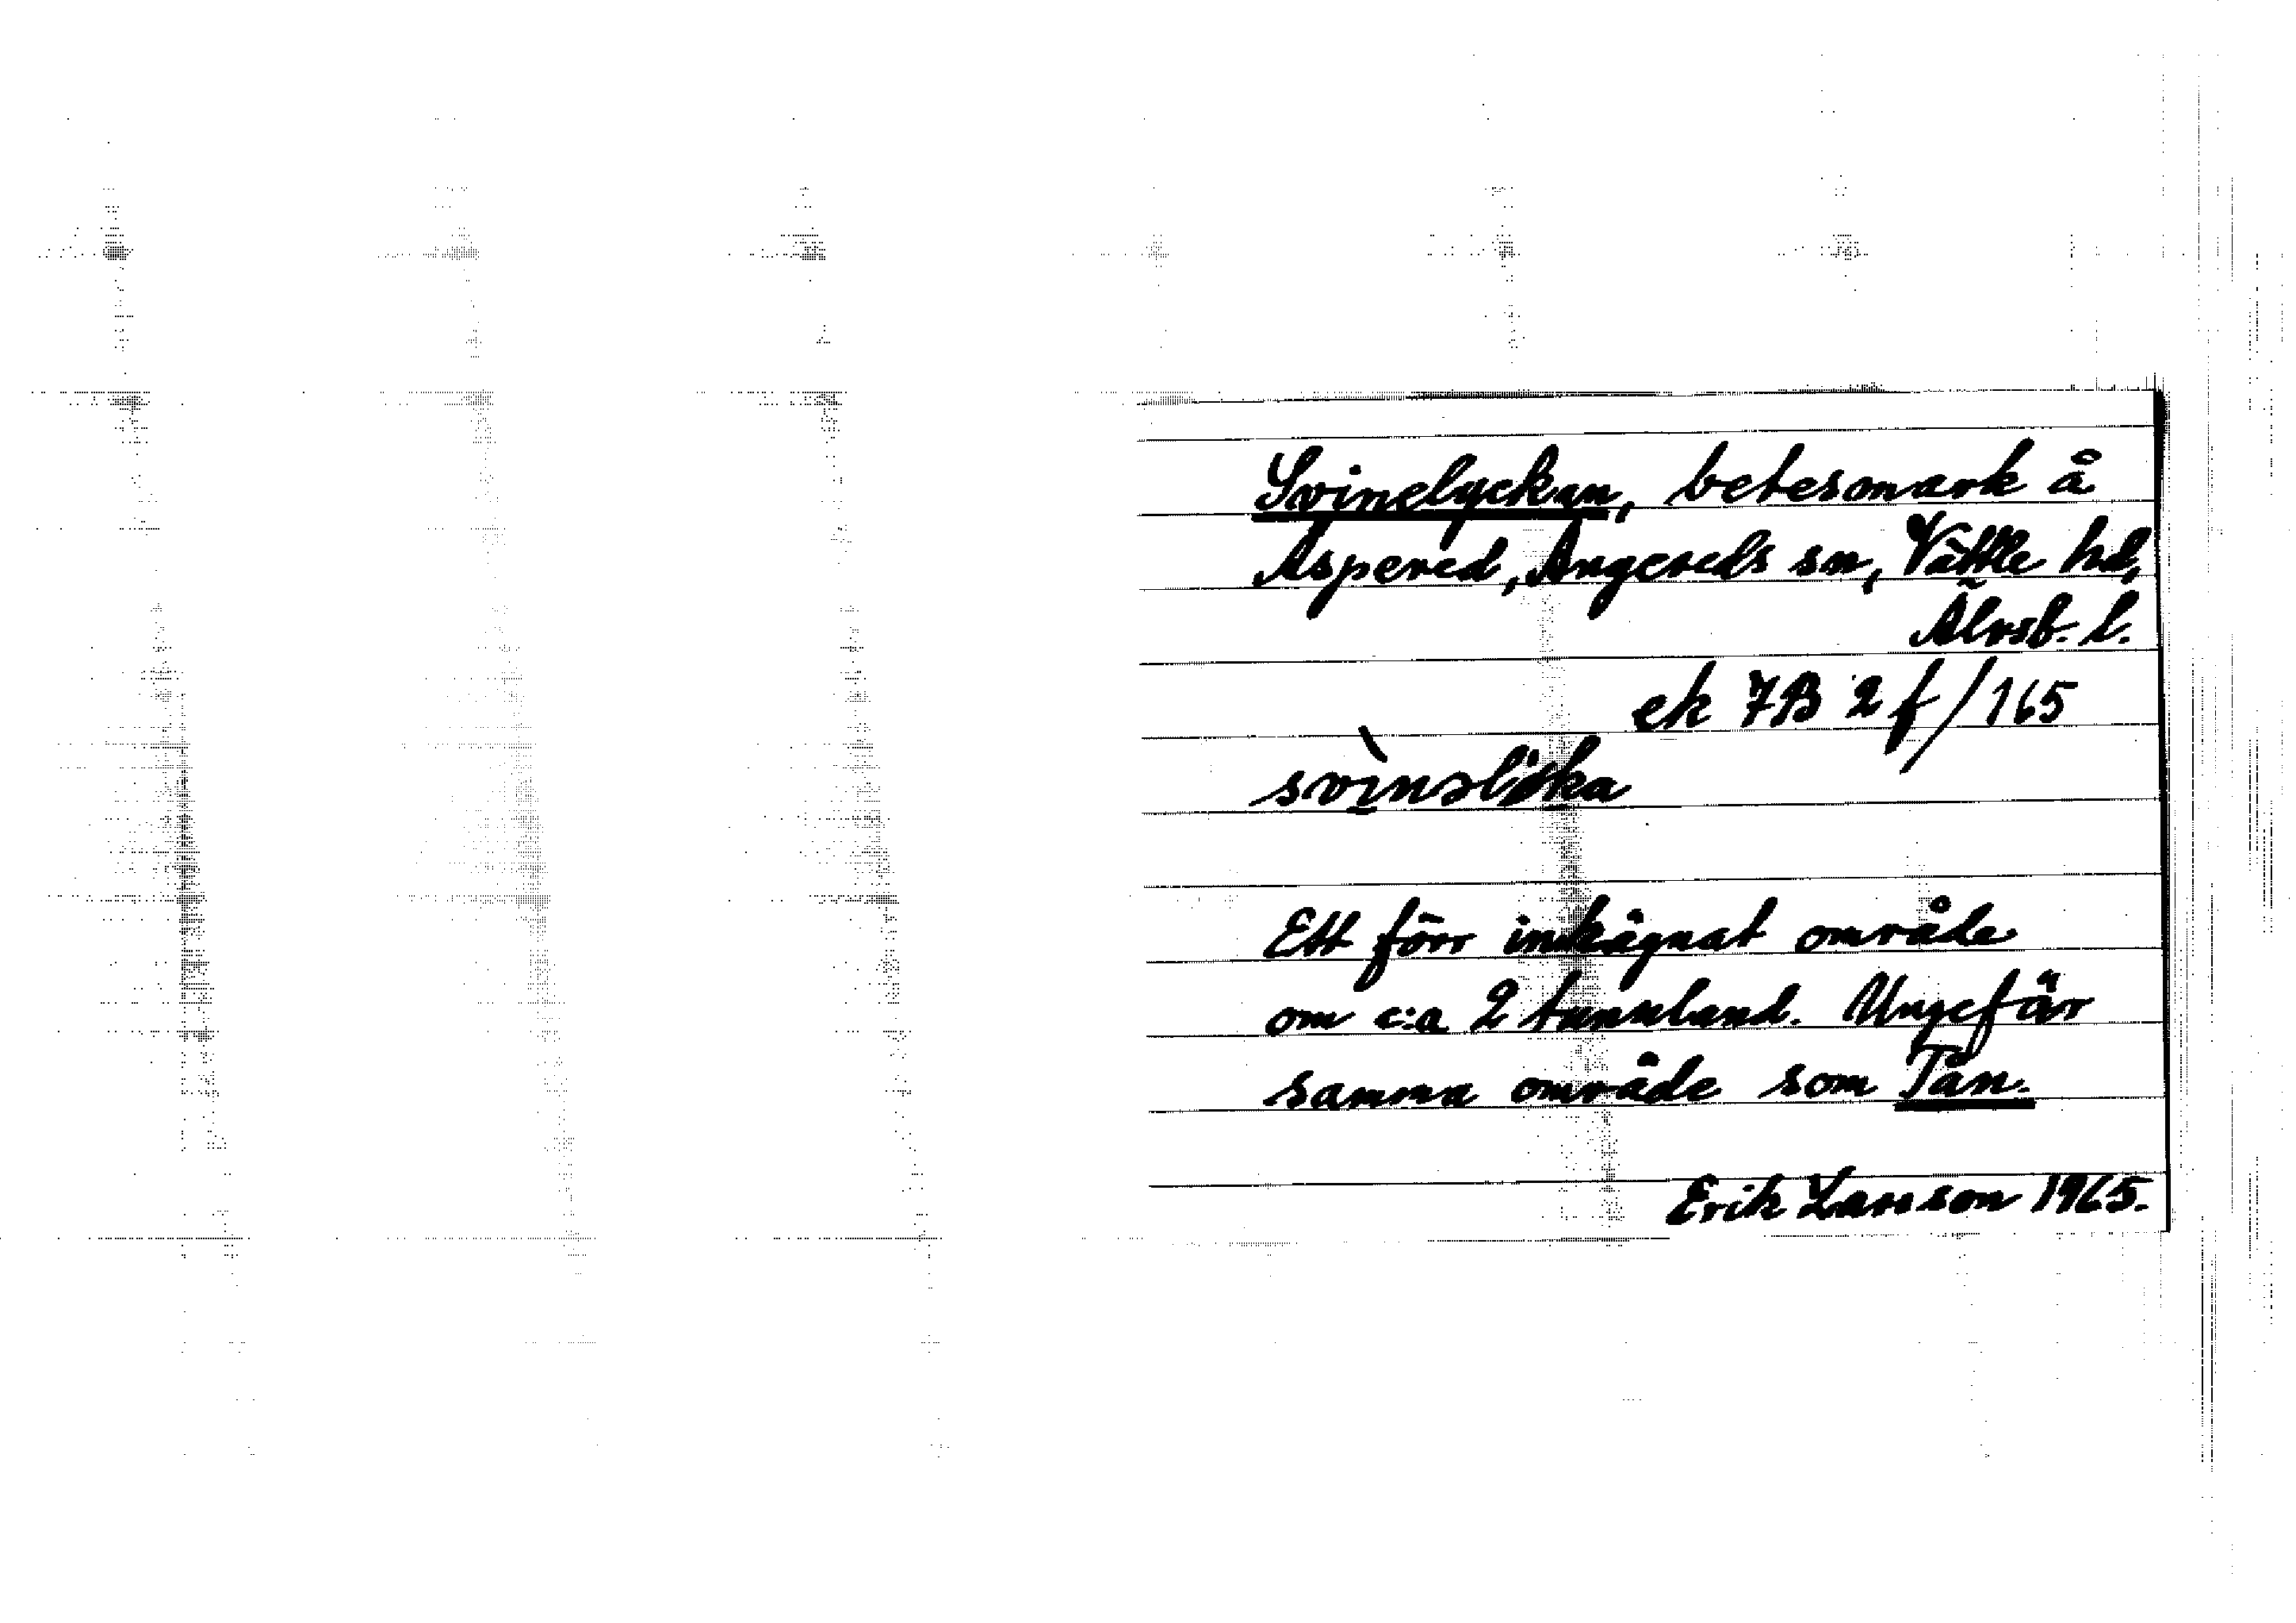 Svinelyckan, betesmark å
Aspered, Angereds sn, Vättle hd,
Älvsb. l.
ek 7B 2 f/165
svìnəlöka
Ett förr inhägnat område
om c:a 2 tunnland. Ungefär
samma område som Tån.
Erik Larsson 1965.